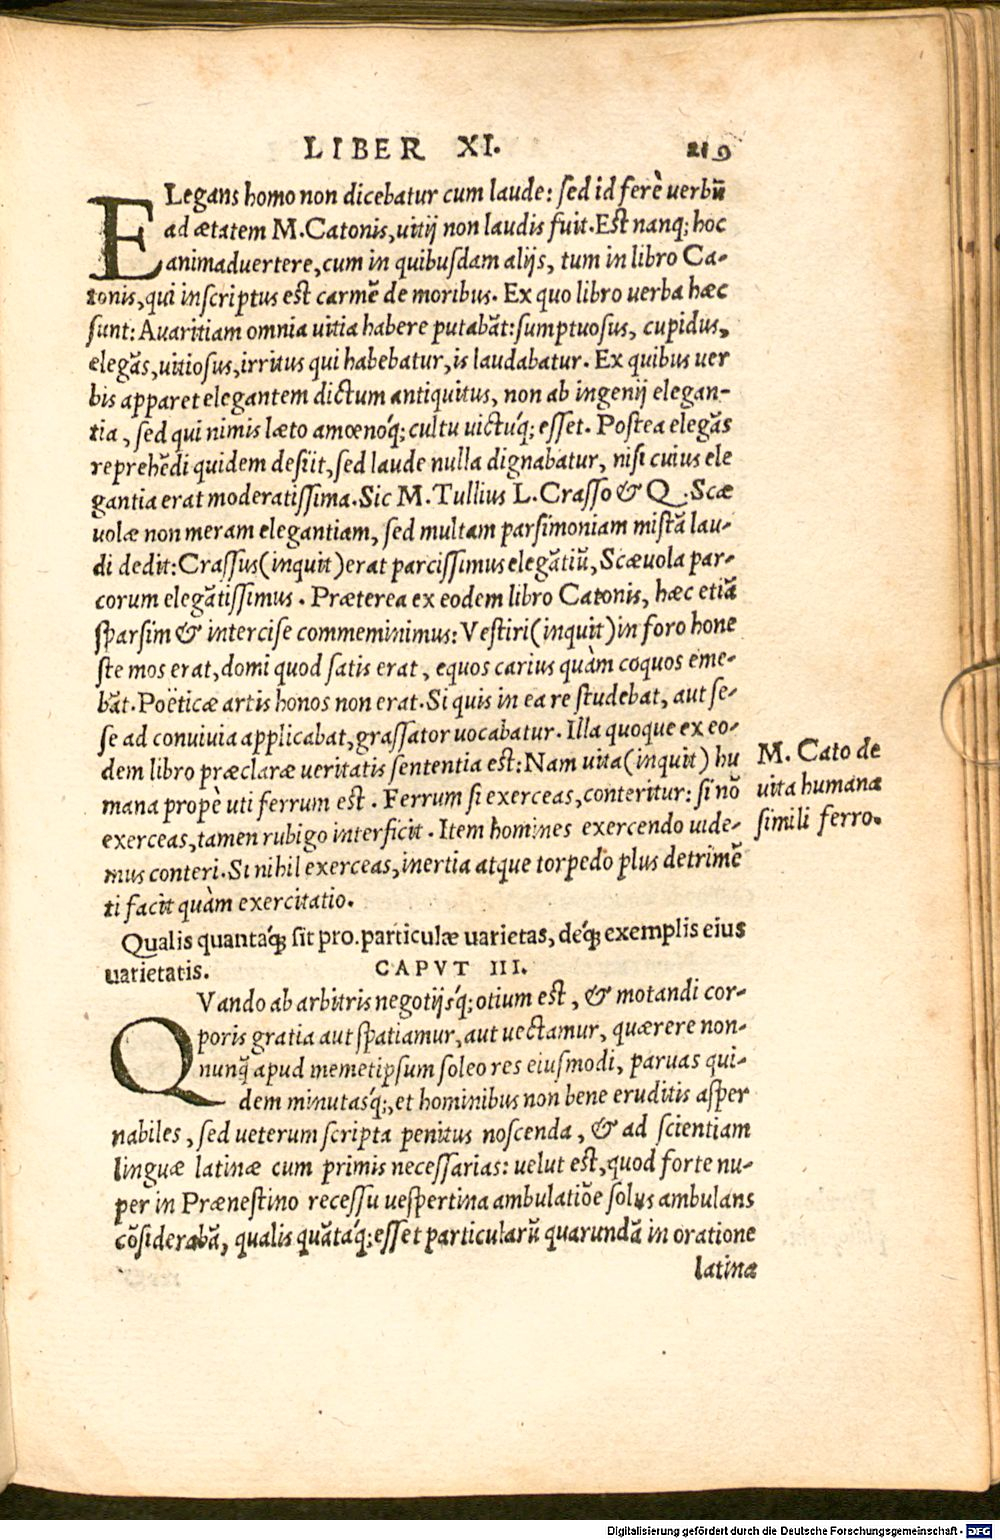 LIBER XI. 219
ELegans homo non dicebatur cum laude: sed id ferè uerbū
ad ætatem M.Catonis, uitij non laudis fuit. Est nanq; hoc
animaduertere, cum in quibusdam alijs, tum in libro Ca-
tonis, qui inscriptus est carmē de moribus. Ex quo libro uerba hæc
sunt: Auaritiam omnia uitia habere putabāt: sumptuosus, cupidus,
elegās, uitiosus, irritus qui habebatur, is laudabatur. Ex quibus uer
bis apparet elegantem dictum antiquitus, non ab ingenij elegan-
tia, sed qui nimis læto amœnóq; cultu uictúq; esset. Postea elegās
reprehēdi quidem desijt, sed laude nulla dignabatur, nisi cuius ele
gantia erat moderatissima. Sic M. Tullius L. Crasso & Q. Scæ
uolæ non meram elegantiam, sed multam parsimoniam mistā lau-
di dedit: Crassus (inquit) erat parcissimus elegātiū, Scæuola par-
corum elegātissimus. Præterea ex eodem libro Catonis, hæc etiā
sparsim & intercise commeminimus: Vestiri (inquit) in foro hone
ste mos erat, domi quod satis erat, equos carius quàm coquos eme-
bāt. Poëticæ artis honos non erat. Si quis in ea re studebat, aut se-
se ad conuiuia applicabat, grassator uocabatur. Illa quoque ex eo-
dem libro præclaræ ueritatis sententia est: Nam uita (inquit) hu
mana propè uti ferrum est. Ferrum si exerceas, conteritur: si nō
exerceas, tamen rubigo interficit. Item homines exercendo uide-
mus conteri. Si nihil exerceas, inertia atque torpedo plus detrimē
ti facit quàm exercitatio.
M. Cato de
uita humana
simili ferro.
Qualis quantáq; sit pro. particulæ uarietas, déq; exemplis eius
uarietatis. CAPVT III.
QVando ab arbitris negotijsq́; otium est, & motandi cor-
poris gratia aut spatiamur, aut uectamur, quærere non-
nunq̄ apud memetipsum soleo res eiusmodi, paruas qui-
dem minutasq́;, et hominibus non bene eruditis asper
nabiles, sed ueterum scripta penitus noscenda, & ad scientiam
linguæ latinæ cum primis necessarias: uelut est, quod forte nu-
per in Prænestino recessu uespertina ambulatiōe solus ambulans
cōsiderabā, qualis quātáq; esset particularū quarundā in oratione
latina
Digitalisierung gefördert durch die Deutsche Forschungsgemeinschaft - DFG